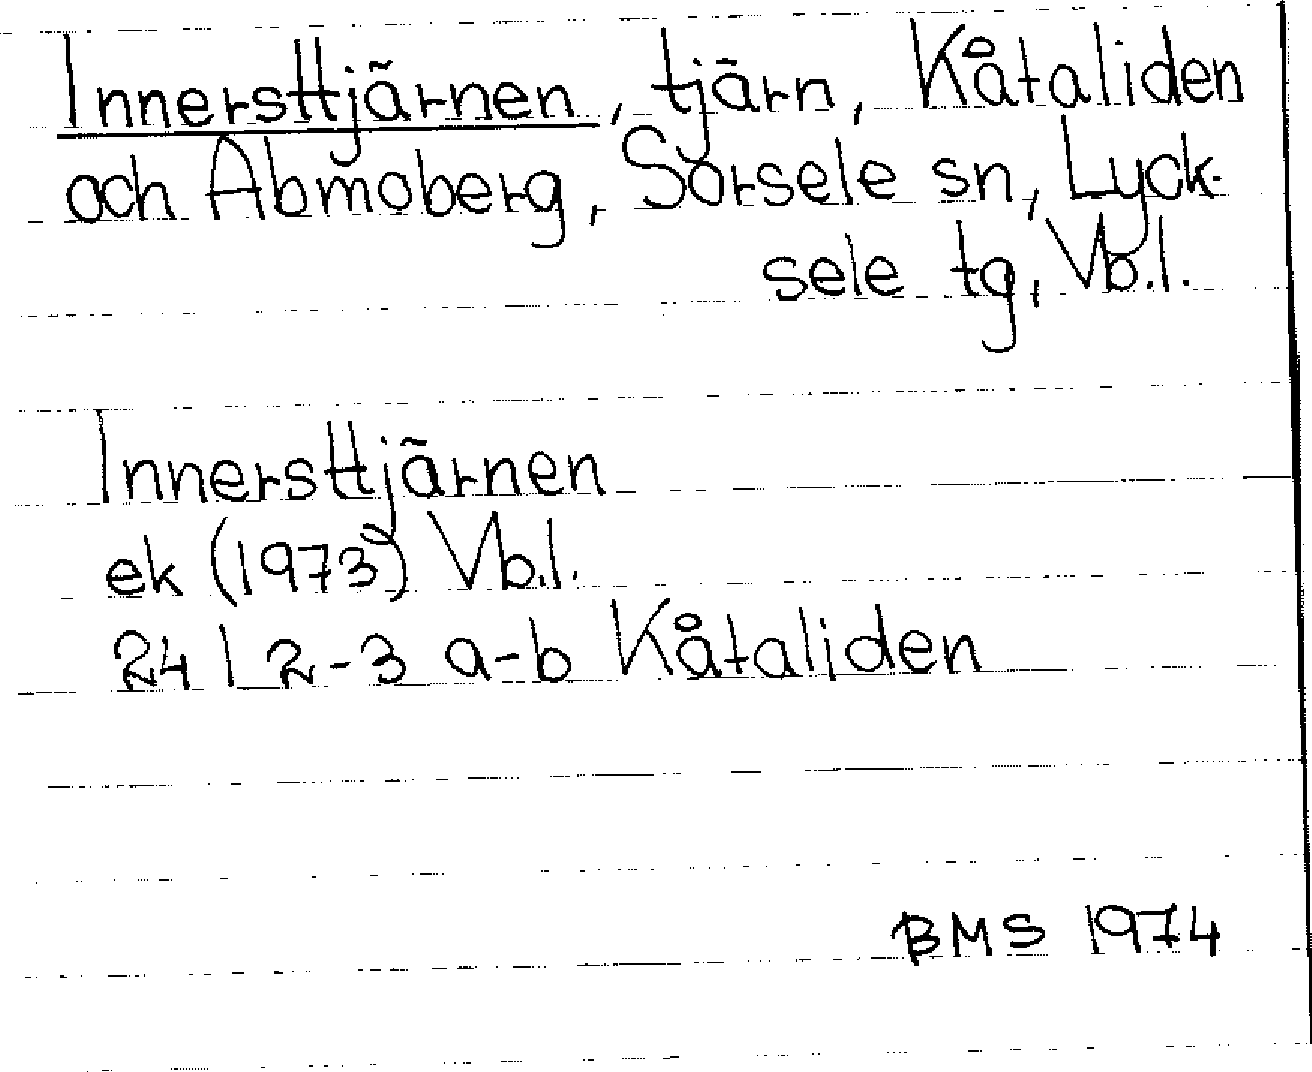 Innersttjärnen, tjärn, Kåtaliden
och Abmoberg, Sorsele sn, Lyck-
sele tg, Vb.l.
Innersttjärnen
ek (1973) Vb.l.
24 I 2-3 a-b Kåtaliden
BMS 1974